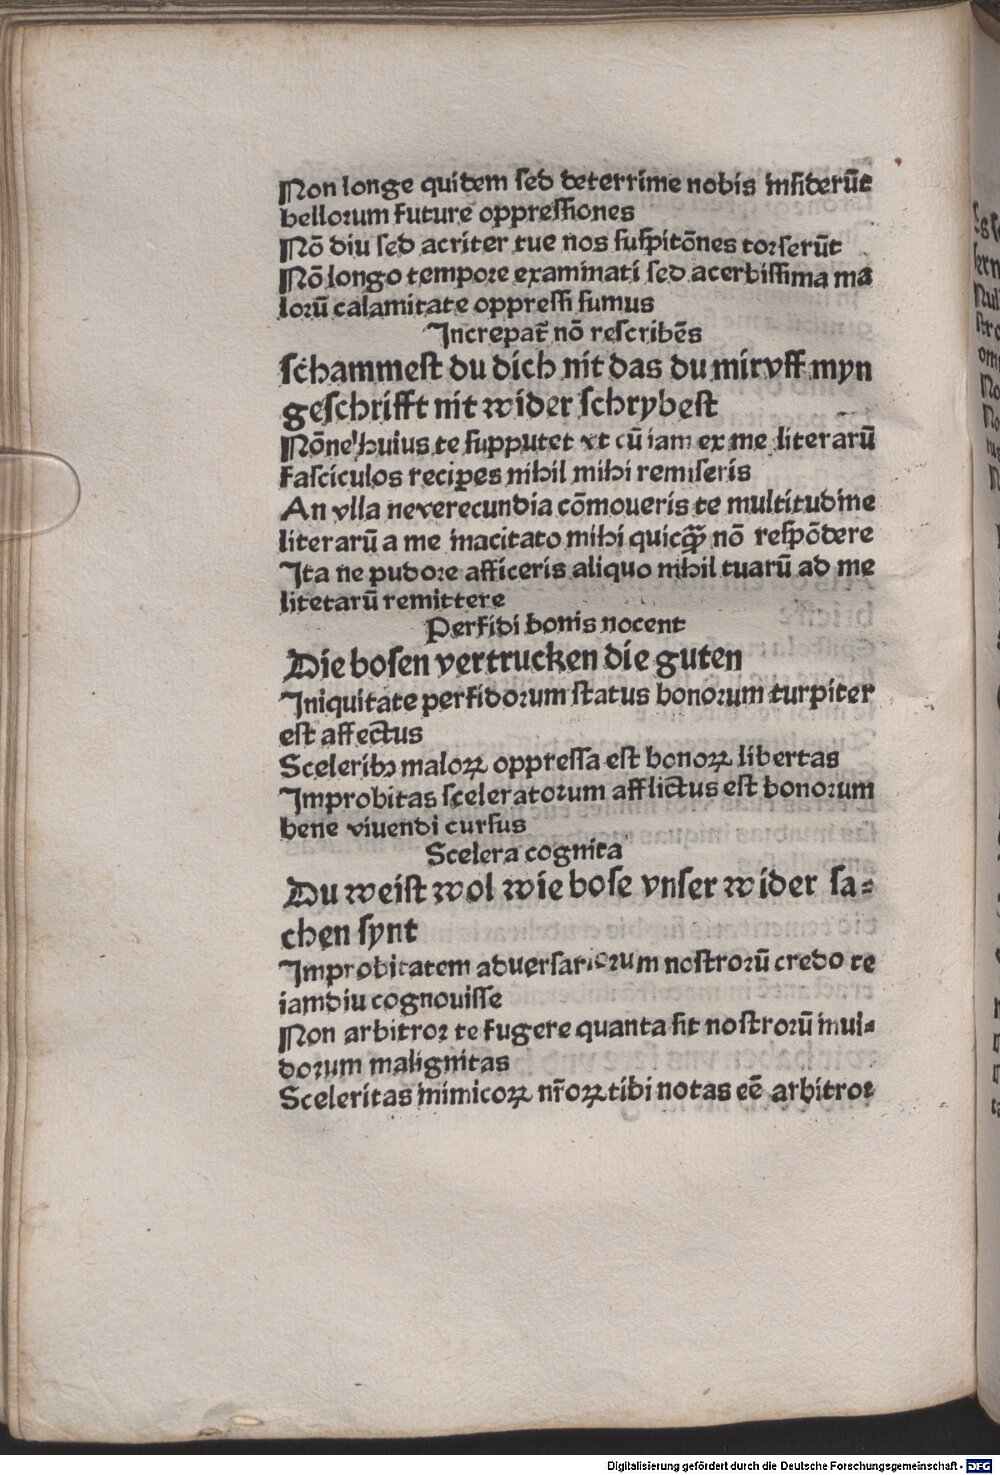 Non longe quidem sed deterrime nobis insiderūt
bellorum future oppressiones
Nō diu sed acriter tue nos suspitōnes torserūt
Nō longo tempore examinati sed acerbissima ma
lorū calamitate oppressi sumus
Increpat̄ nō rescribēs
schammest du dich nit das du mir vff myn
geschrifft nit wider schrybest
Nōne huius te supputet vt cū iam ex me literarū
fasciculos recipes nihil mihi remiseris
An vlla neverecundia cōmoueris te multitudine
literarū a me inacitato mihi quicꝙ̄ nō respōdere
Ita ne pudore afficeris aliquo nihil tuarū ad me
litetarū remittere
Perfidi bonis nocent
Die bosen vertrucken die guten
Iniquitate perfidorum status bonorum turpiter
est affectus
Sceleribꝫ maloꝝ oppressa est bonoꝝ libertas
Improbitas sceleratorum afflictus est bonorum
bene viuendi cursus
Scelera cognita
Du weist wol wie bose vnser wider sa⸗
chen synt
Improbitatem adversariorum nostrorū credo te
iamdiu cognouisse
Non arbitror te fugere quanta sit nostrorū inui⸗
dorum malignitas
Sceleritas inimicoꝝ nr̄oꝝ tibi notas eē arbitror
Digitalisierung gefördert durch die Deutsche Forschungsgemeinschaft - DFG